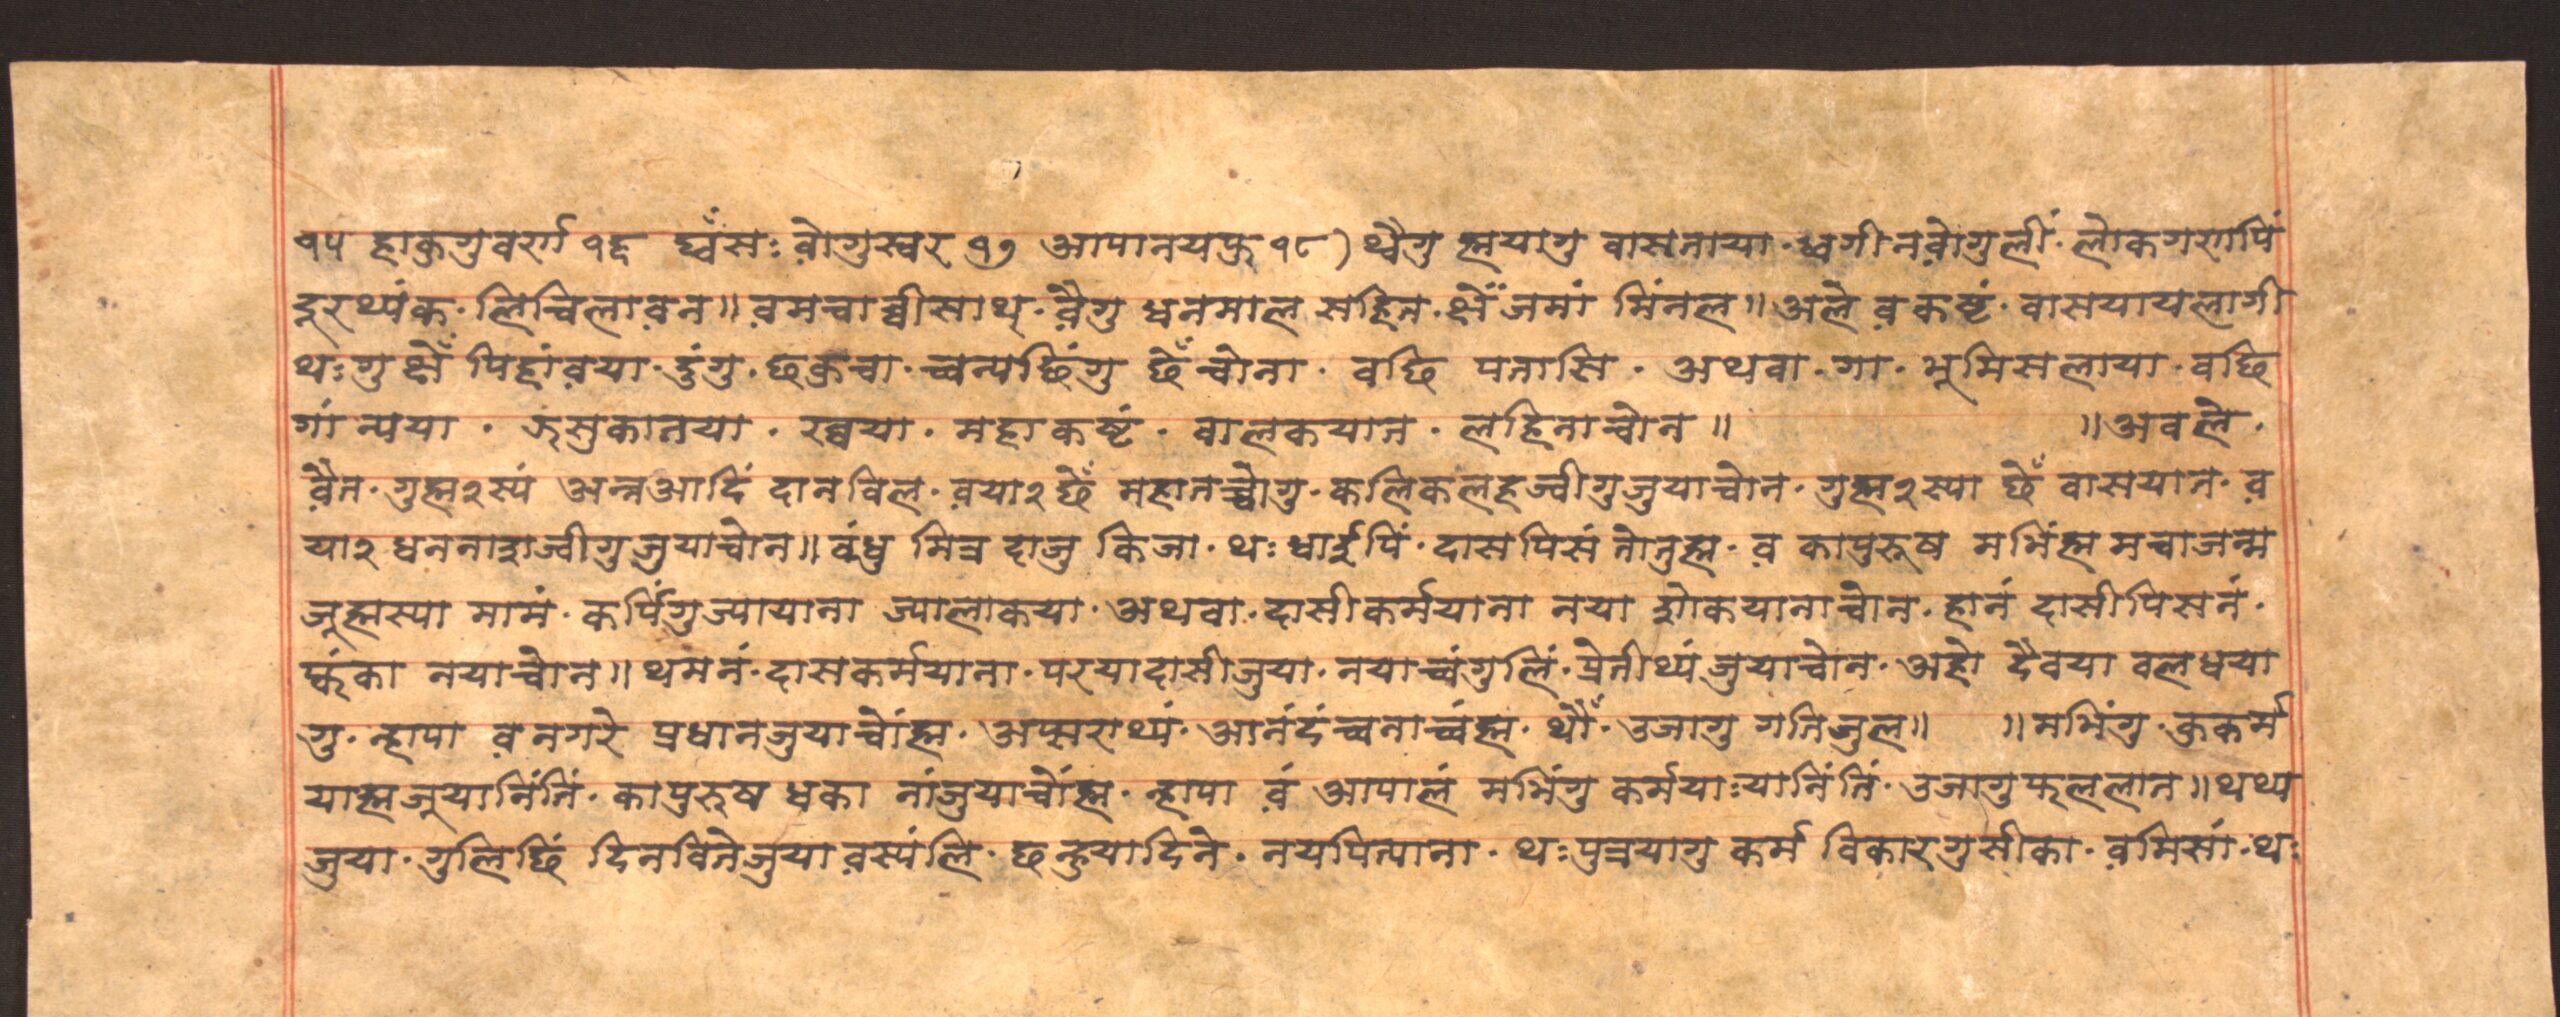 १५ हाकुगुवर्ण १६ ध्वँसः व़ोगुस्वर १७ आपानयफु १८) थ्वैगु ह्मयागु वासनाया · ध्वगीनव़ोगुलीं · लोकगणपिं
दुरथ्यंक · लिचिलाव़न ॥ व़मचाब्वीसाथ · व़ैगु धनमाल सहित · क्षेँ जमां मिंनल ॥ अले व़ कष्टं · वासयायलागी
थःगु क्षेँ पिहांव़या · दुंगु · छकुचा · च्वन्यछिंगु छेँ चोना · वछि पतासि · अथवा · गा · भूमिस लाया · वछि
गां न्यया · ॡसुकातया · रव्वया · महाकष्टं · वालकयात · लहिनाचोन ॥ ॥ अवले ·
व़ैत · गुह्म२स्यं अन्नआदिं दानविल · व़या२ छेँ महानच्वोगु · कलिकलहज्वीगुजुयाचोन · गुह्म२स्या छेँ वासयात · व़
या२ धननाशज्वीगुजुयाचोन ॥ वंधु मित्र दाजु किजा · थः थाईपिं · दासपिसं तोतुह्म · व़ कापुरुष मभिंह्म मचाजन्म
जूह्मस्या मामं · कपिंगुज्यायाना ज्यालाकया · अथवा · दासीकर्मयाना नया शोकयानाचोन · हानं दासीपिसनं ·
फ्वंका नयाचोन ॥ थमनं · दासकर्मयाना · परयादासीजुया · नयाच्वंगुलिं · प्रेतीथ्यं जुयाचोन · अहो दैवया वलधया
गु · न्हापा व़ नगरे प्रधानजुयाचोंह्म · अप्सराथ्यं · आनंदं च्वनाच्वंह्म · थौँ · उजागु गतिजुल ॥ ॥ मभिंगु · कुकर्म
याह्मजूयानिंतिं · कापुरुष धका नांजुयाचोंह्म · न्हापा व़ं आपालं मभिंगु कर्मयाःयानिंतिं · उजागुफललात ॥ थथ्य
जुया · गुलिछिं दिनवितेजुया व़स्यंलि · छन्हुयादिने · नयपित्याना · थःपुत्रयागु कर्म विकारगुसीका · व़मिसां · थः